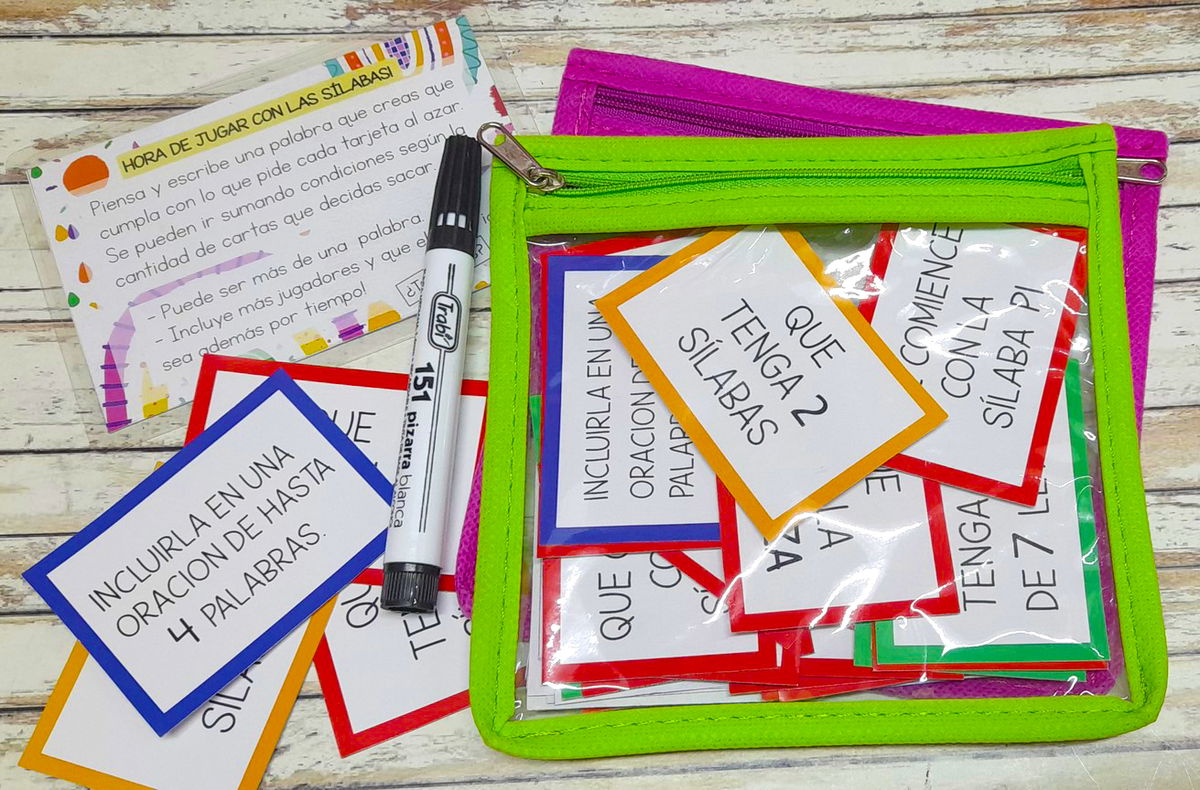 HORA DE JUGAR CON LAS SÍLABAS!
Piensa y escribe una palabra que creas que
cumpla con lo que pide cada tarjeta al azar.
Se pueden ir sumando condiciones según
cantidad de cartas que decidas sacar.
- Puede ser más de una palabra.
- Incluye más jugadores y que
sea además por tiempo!
Trabi
151 pizarra blanca
QUE
INCLUIRLA EN UNA
ORACION DE HASTA
4 PALABRAS.
INCLUIRLA EN UNA
ORACION DE
QUE
TENGA 2
SÍLABAS
COMIENCE
CON LA
SÍLABA PI
QUE
LA
TENGA
DE 7